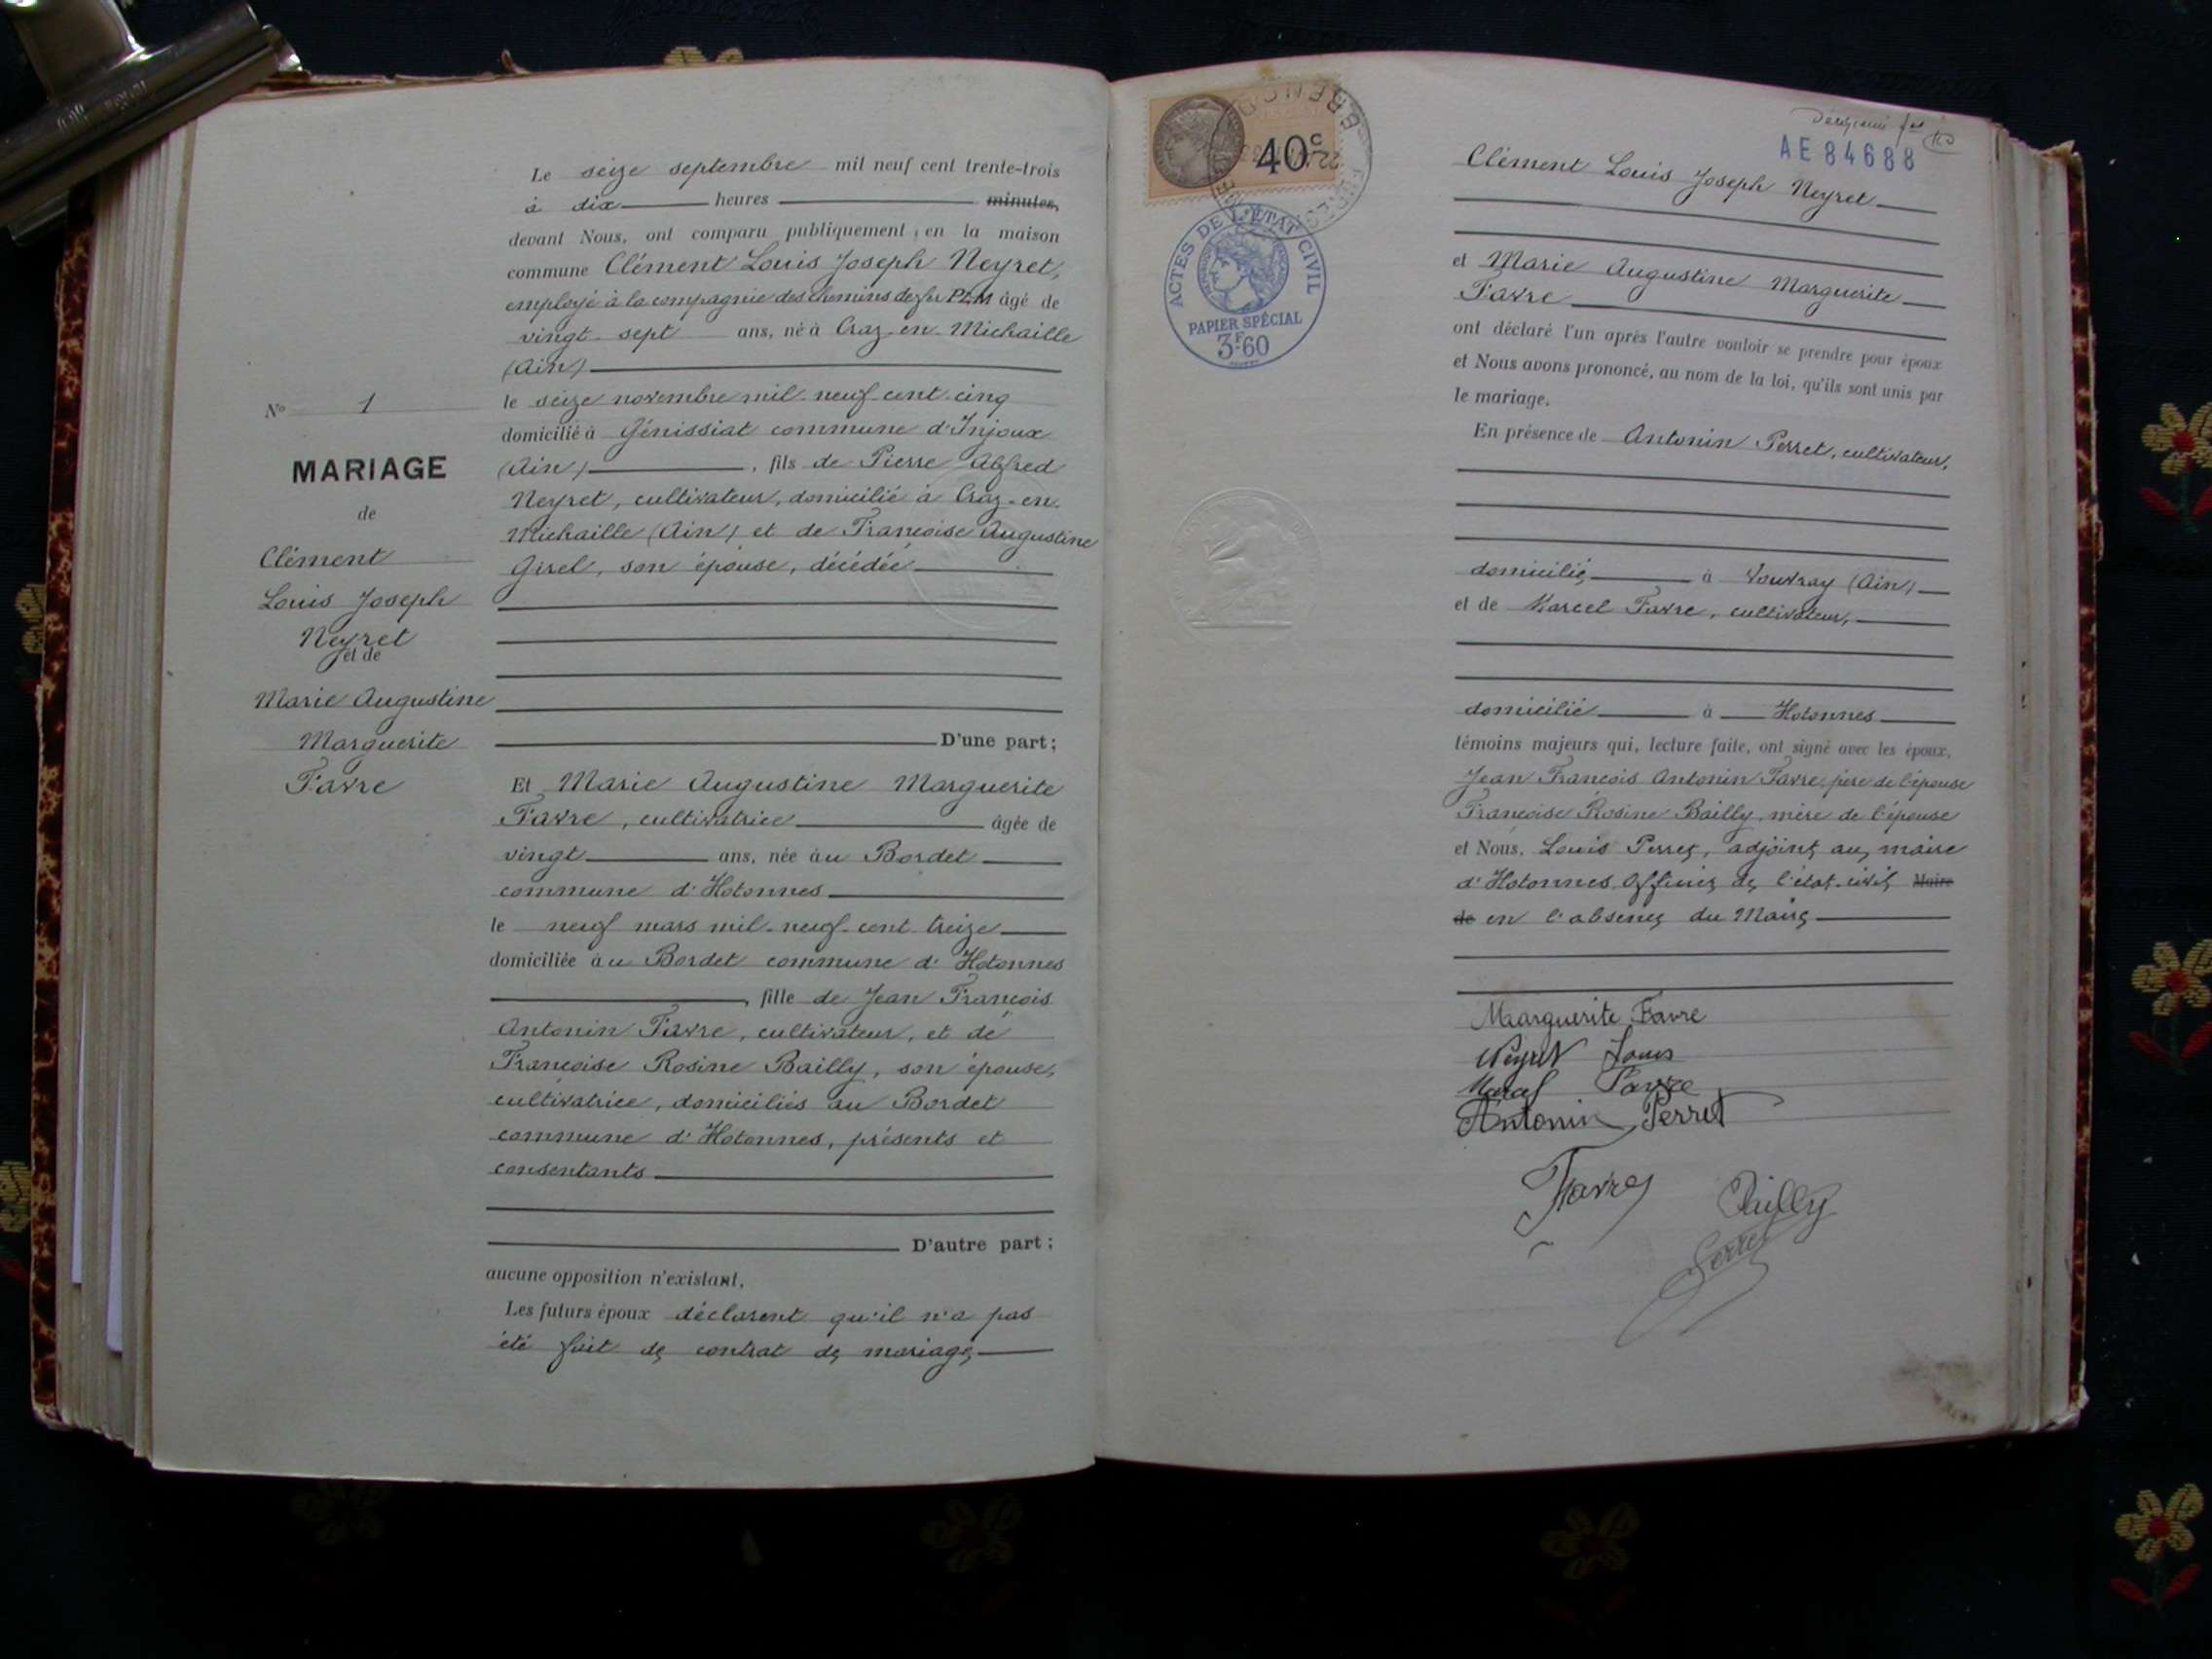 Le seize septembre mil neuf cent trente-trois
à dix heures minutes,
devant Nous, ont comparu publiquement, en la maison
commune Clément Louis Joseph Neyret,
employé à la compagnie des chemins de fer PLM âgé de
vingt-sept ans, né à Craz-en-Michaille
(Ain)
le seize novembre mil-neuf-cent-cinq
domicilié à Génissiat commune d'Injoux
(Ain), fils de Pierre Alfred
Neyret, cultivateur, domicilié à Craz-en-
Michaille (Ain) et de Françoise Augustine
Girel, son épouse, décédée
D'une part;
Et Marie Augustine Marguerite
Favre, cultivatrice âgée de
vingt ans, née au Bordet
commune d'Hotonnes
le neuf mars mil-neuf-cent-treize
domiciliée au Bordet commune d'Hotonnes
, fille de Jean François
Antonin Favre, cultivateur, et de
Françoise Rosine Bailly, son épouse,
cultivatrice, domiciliés au Bordet
commune d'Hotonnes, présents et
consentants
D'autre part;
aucune opposition n'existant,
Les futurs époux déclarent qu'il n'a pas
été fait de contrat de mariage
N° 1
MARIAGE
de
Clément
Louis Joseph
Neyret
et de
Marie Augustine
Marguerite
Favre
40c
ACTES DE L'ÉTAT CIVIL
PAPIER SPÉCIAL
3F60
AE 84688
Clément Louis Joseph Neyret
et Marie Augustine Marguerite
Favre
ont déclaré l'un après l'autre vouloir se prendre pour époux
et Nous avons prononcé, au nom de la loi, qu'ils sont unis par
le mariage.
En présence de Antonin Perret, cultivateur,
domicilié à Vouvray (Ain)
et de Marcel Favre, cultivateur,
domicilié à Hotonnes
témoins majeurs qui, lecture faite, ont signé avec les époux,
Jean François Antonin Favre, père de l'épouse
Françoise Rosine Bailly, mère de l'épouse
et Nous, Louis Perret, adjoint au maire
d'Hotonnes, officier de l'état-civil Maire
de en l'absence du Maire
Marguerite Favre
Neyret Louis
Marcel Favre
Antonin Perret
Favre Bailly
Perret